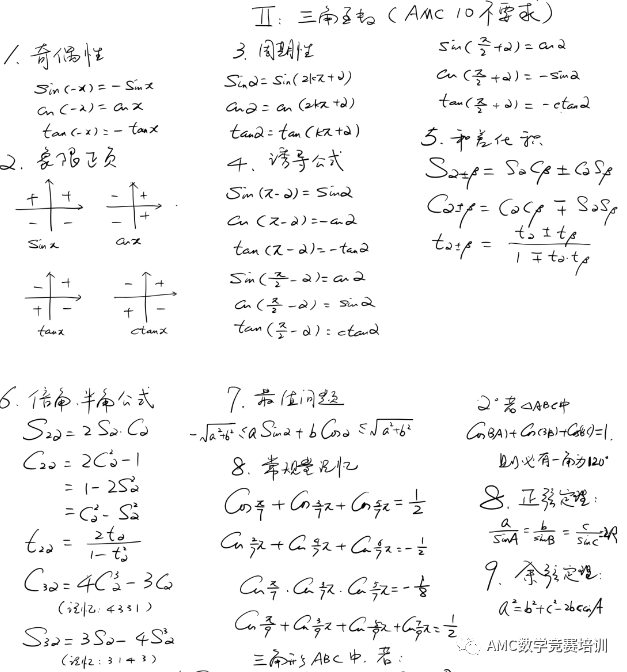 II: 三角函数 (AMC 10不要求)
1. 奇偶性
sin(-x) = -sinx
cos(-x) = cosx
tan(-x) = -tanx
2. 象限正负
+ +
- -
sinx
- +
- +
cosx
- +
+ -
tanx
- +
+ -
ctanx
3. 周期性
sinα = sin(2kπ+α)
cosα = cos(2kπ+α)
tanα = tan(kπ+α)
4. 诱导公式
sin(π-α) = sinα
cos(π-α) = -cosα
tan(π-α) = -tanα
sin(π/2-α) = cosα
cos(π/2-α) = sinα
tan(π/2-α) = ctanα
sin(π/2+α) = cosα
cos(π/2+α) = -sinα
tan(π/2+α) = -ctanα
5. 和差化积
Sα±β = SαCβ ± CαSβ
Cα±β = CαCβ ∓ SαSβ
tα±β = (tα ± tβ)/(1 ∓ tα·tβ)
6. 倍角.半角公式
S2α = 2Sα·Cα
C2α = 2C²α-1
= 1-2S²α
= C²α-S²α
t2α = 2tα/(1-t²α)
C3α = 4C³α-3Cα
(记忆: 4331)
S3α = 3Sα-4S³α
(记忆: 3143)
7. 最值问题
-√(a²+b²) ≤ aSinα+bCosα ≤ √(a²+b²)
8. 常规量记忆
Cos π/7 + Cos 3/7π + Cos 5/7π = 1/2
Cos 2/7π + Cos 4/7π + Cos 6/7π = -1/2
Cos π/7 · Cos 3/7π · Cos 5/7π = -1/8
Cos π/9 + Cos 3/9π + Cos 5/9π + Cos 7/9π = 1/2
三角形ABC中. 若:
2° 若△ABC中
Cos(3A)+Cos(3B)+Cos(3C)=1.
则必有一角为120°
8. 正弦定理:
a/sinA = b/sinB = c/sinC = 2R
9. 余弦定理:
a²=b²+c²-2bccosA
AMC数学竞赛培训